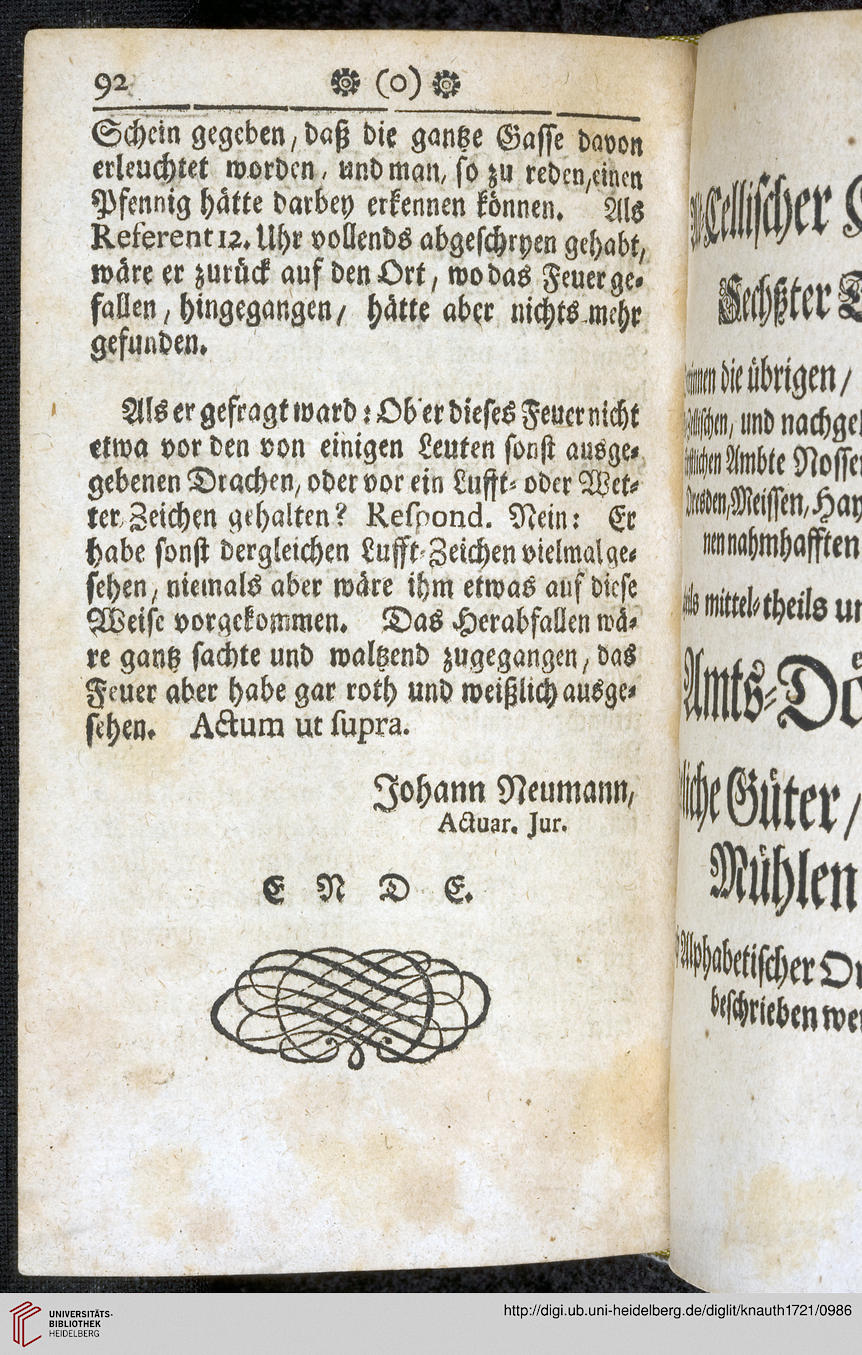 92 (o)
Schein gegeben, daß die gantze Gasse davon
erleuchtet worden, und man, so zu reden, einen
Pfennig hätte darbey erkennen können. Als
Referent 12. Uhr vollends abgeschryen gehabt,
wäre er zurück auf den Ort, wo das Feuer ge-
fallen, hingegangen, hätte aber nichts mehr
gefunden.
Als er gefragt ward: Ob er dieses Feuer nicht
etwa vor den von einigen Leuten sonst ausge-
gebenen Drachen, oder vor ein Lufft- oder Wet-
ter-Zeichen gehalten? Respond. Nein: Er
habe sonst dergleichen Lufft-Zeichen vielmal ge-
sehen, niemals aber wäre ihm etwas auf diese
Weise vorgekommen. Das Herabfallen wä-
re gantz sachte und waltzend zugegangen, das
Feuer aber habe gar roth und weißlich ausge-
sehen. Actum ut supra.
Johann Neumann,
Actuar. Jur.
E N D E.
Cellischer
Sechßter
die übrigen /
und nachgel
Ambte Nossen
Dresden, Meissen, Hay
nen nahmhafften
mittel- theils un
Amts-Dö
Güter /
Mühlen
Alphabetischer Or
beschrieben wer
UNIVERSITÄTS-
BIBLIOTHEK
HEIDELBERG
http://digi.ub.uni-heidelberg.de/diglit/knauth1721/0986